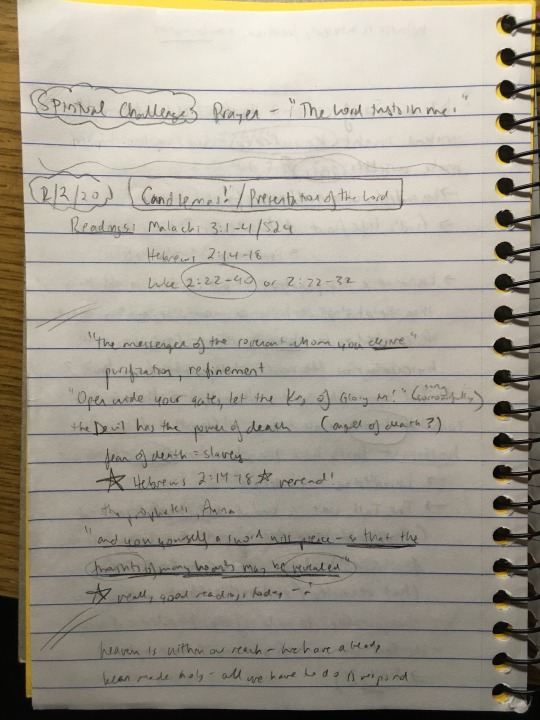 Spiritual Challenges Prayer - "The Lord trusts in me!"
2/2/20 Candlemas! / Presentation of the Lord
Readings: Malachi 3:1-4 / 524
Hebrews 2:14-18
Luke 2:22-40 or 2:22-32
"the messenger of the covenant whom you desire"
purification, refinement
"Open wide your gates, let the King of Glory in!" (sung)
the Devil has the power of death (angel of death?)
fear of death = slavery
☆ Hebrews 2:14-18 ☆ reread!
the prophetess, Anna
"and you yourself a sword will pierce - so that the
thoughts of many hearts may be revealed"
☆ really good readings today - !
heaven is within our reach - we have already
been made holy - all we have to do is respond